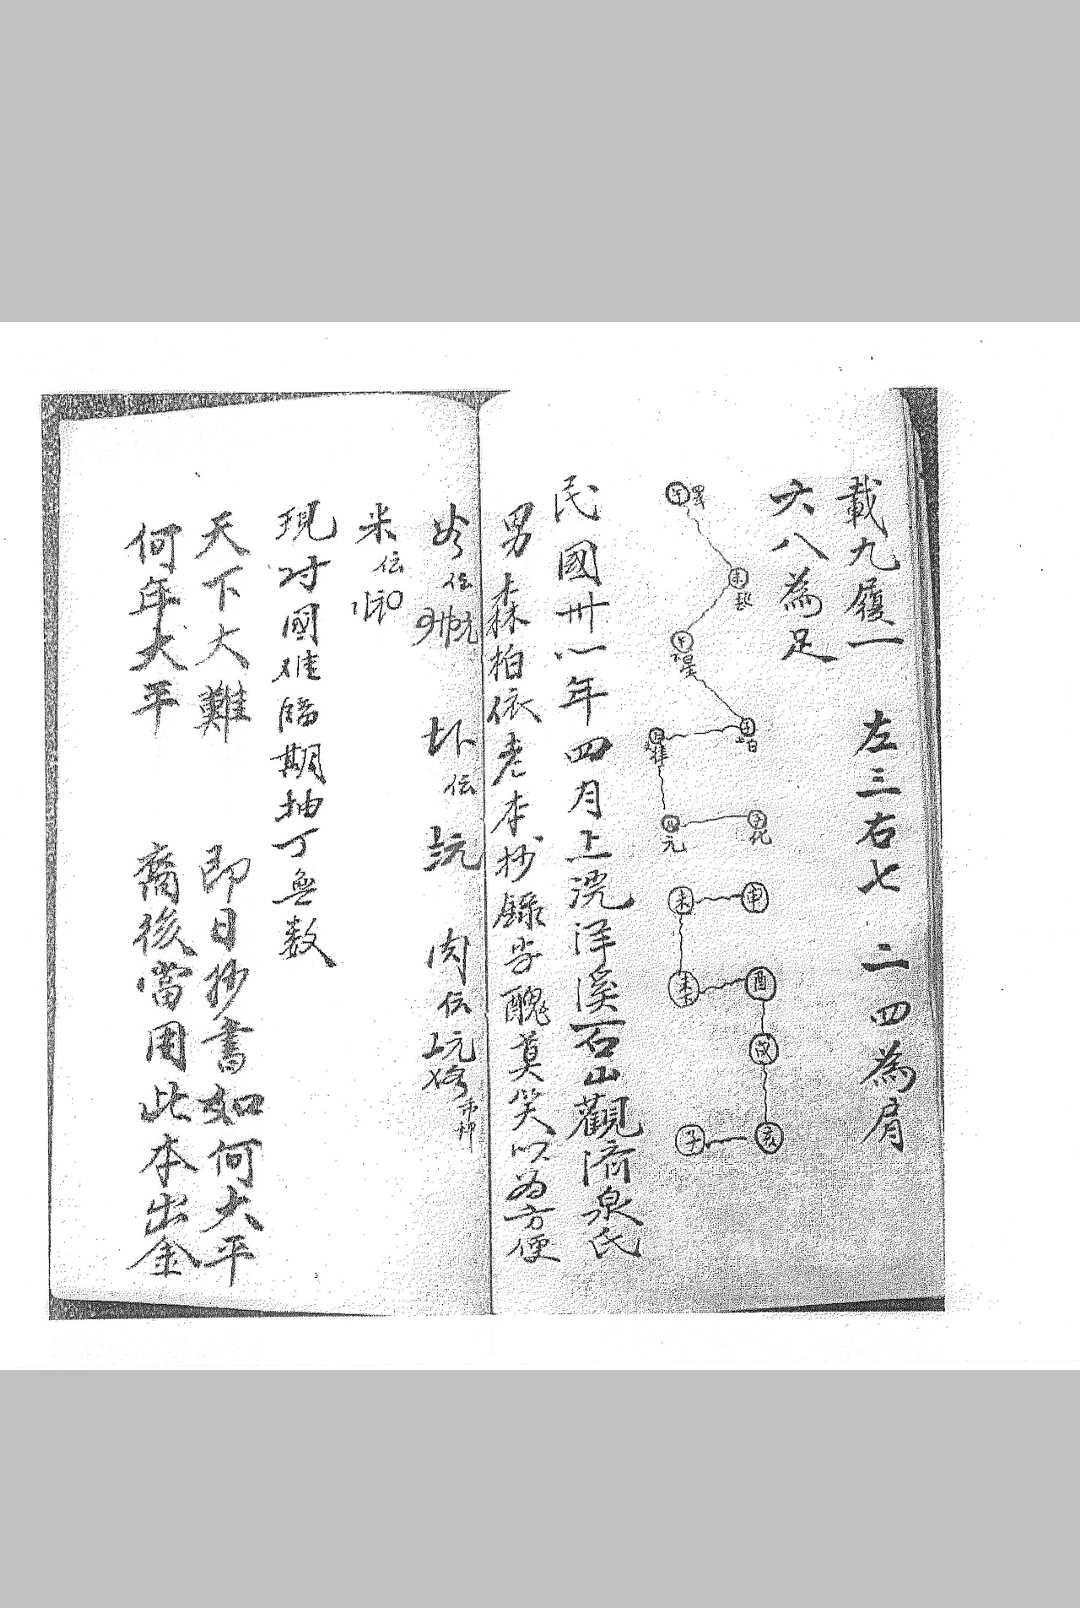 載九履一 左三右七 二四為肩
六八為足
子
未
午
丑
元
申
未
酉
戌
亥
子
民國卅一年四月上浣洋溪石山觀済泉氏
男森柏依老本抄錄字醜莫笑以為方便
伝
圤伝
肉伝
米伝
現时國难臨期抽丁無数
天下大難 即日抄書如何大平
何年大平 裔後當用此本出金